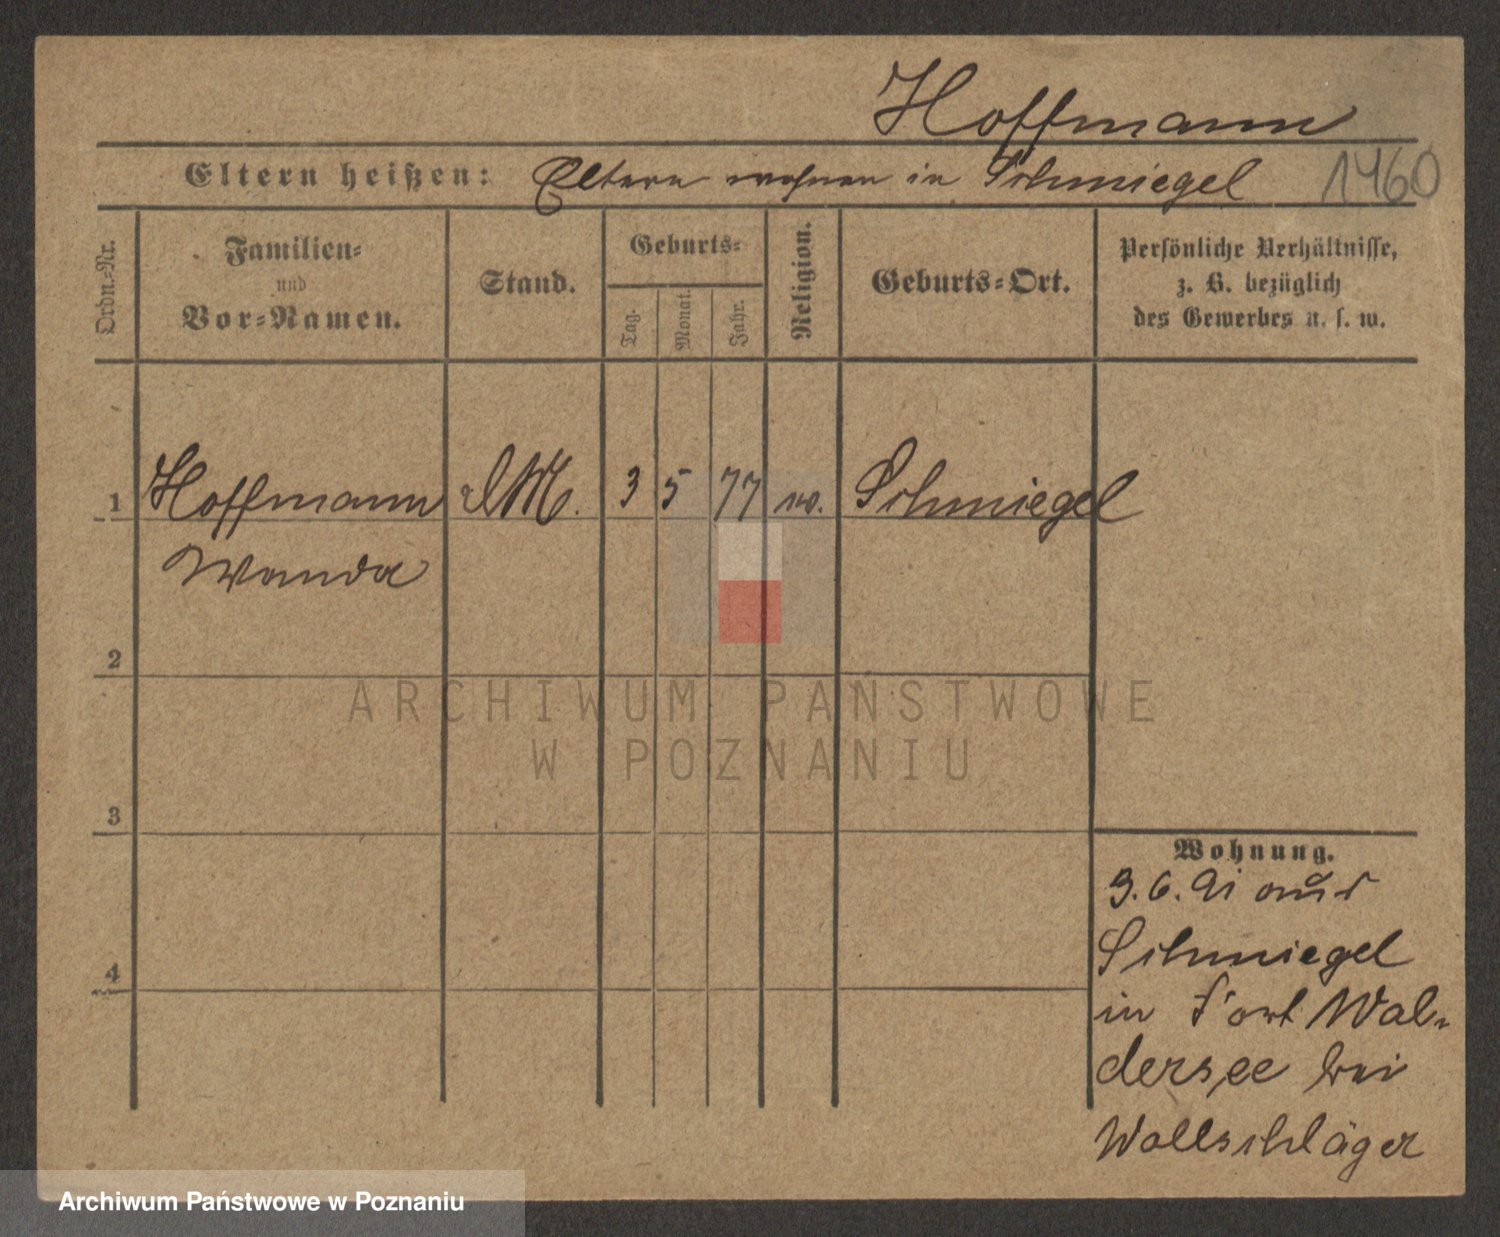 Hoffmann
Eltern heißen: Eltern wohnen in Schmiegel 1460
Ordn.-Nr.
Familien-
und
Vor-Namen.
Stand.
Geburts-
Tag.
Monat.
Jahr.
Religion.
Geburts-Ort.
Persönliche Verhältnisse,
z. B. bezüglich
des Gewerbes u. s. w.
1 Hoffmann D M. 3 5 77 Schmiegel
Wanda
2
ARCHIWUM PAŃSTWOWE
W POZNANIU
3
Wohnung.
3.6.91 aus
Schmiegel
4
in Fort Wal-
dersee bei
Wollschläger
Archiwum Państwowe w Poznaniu